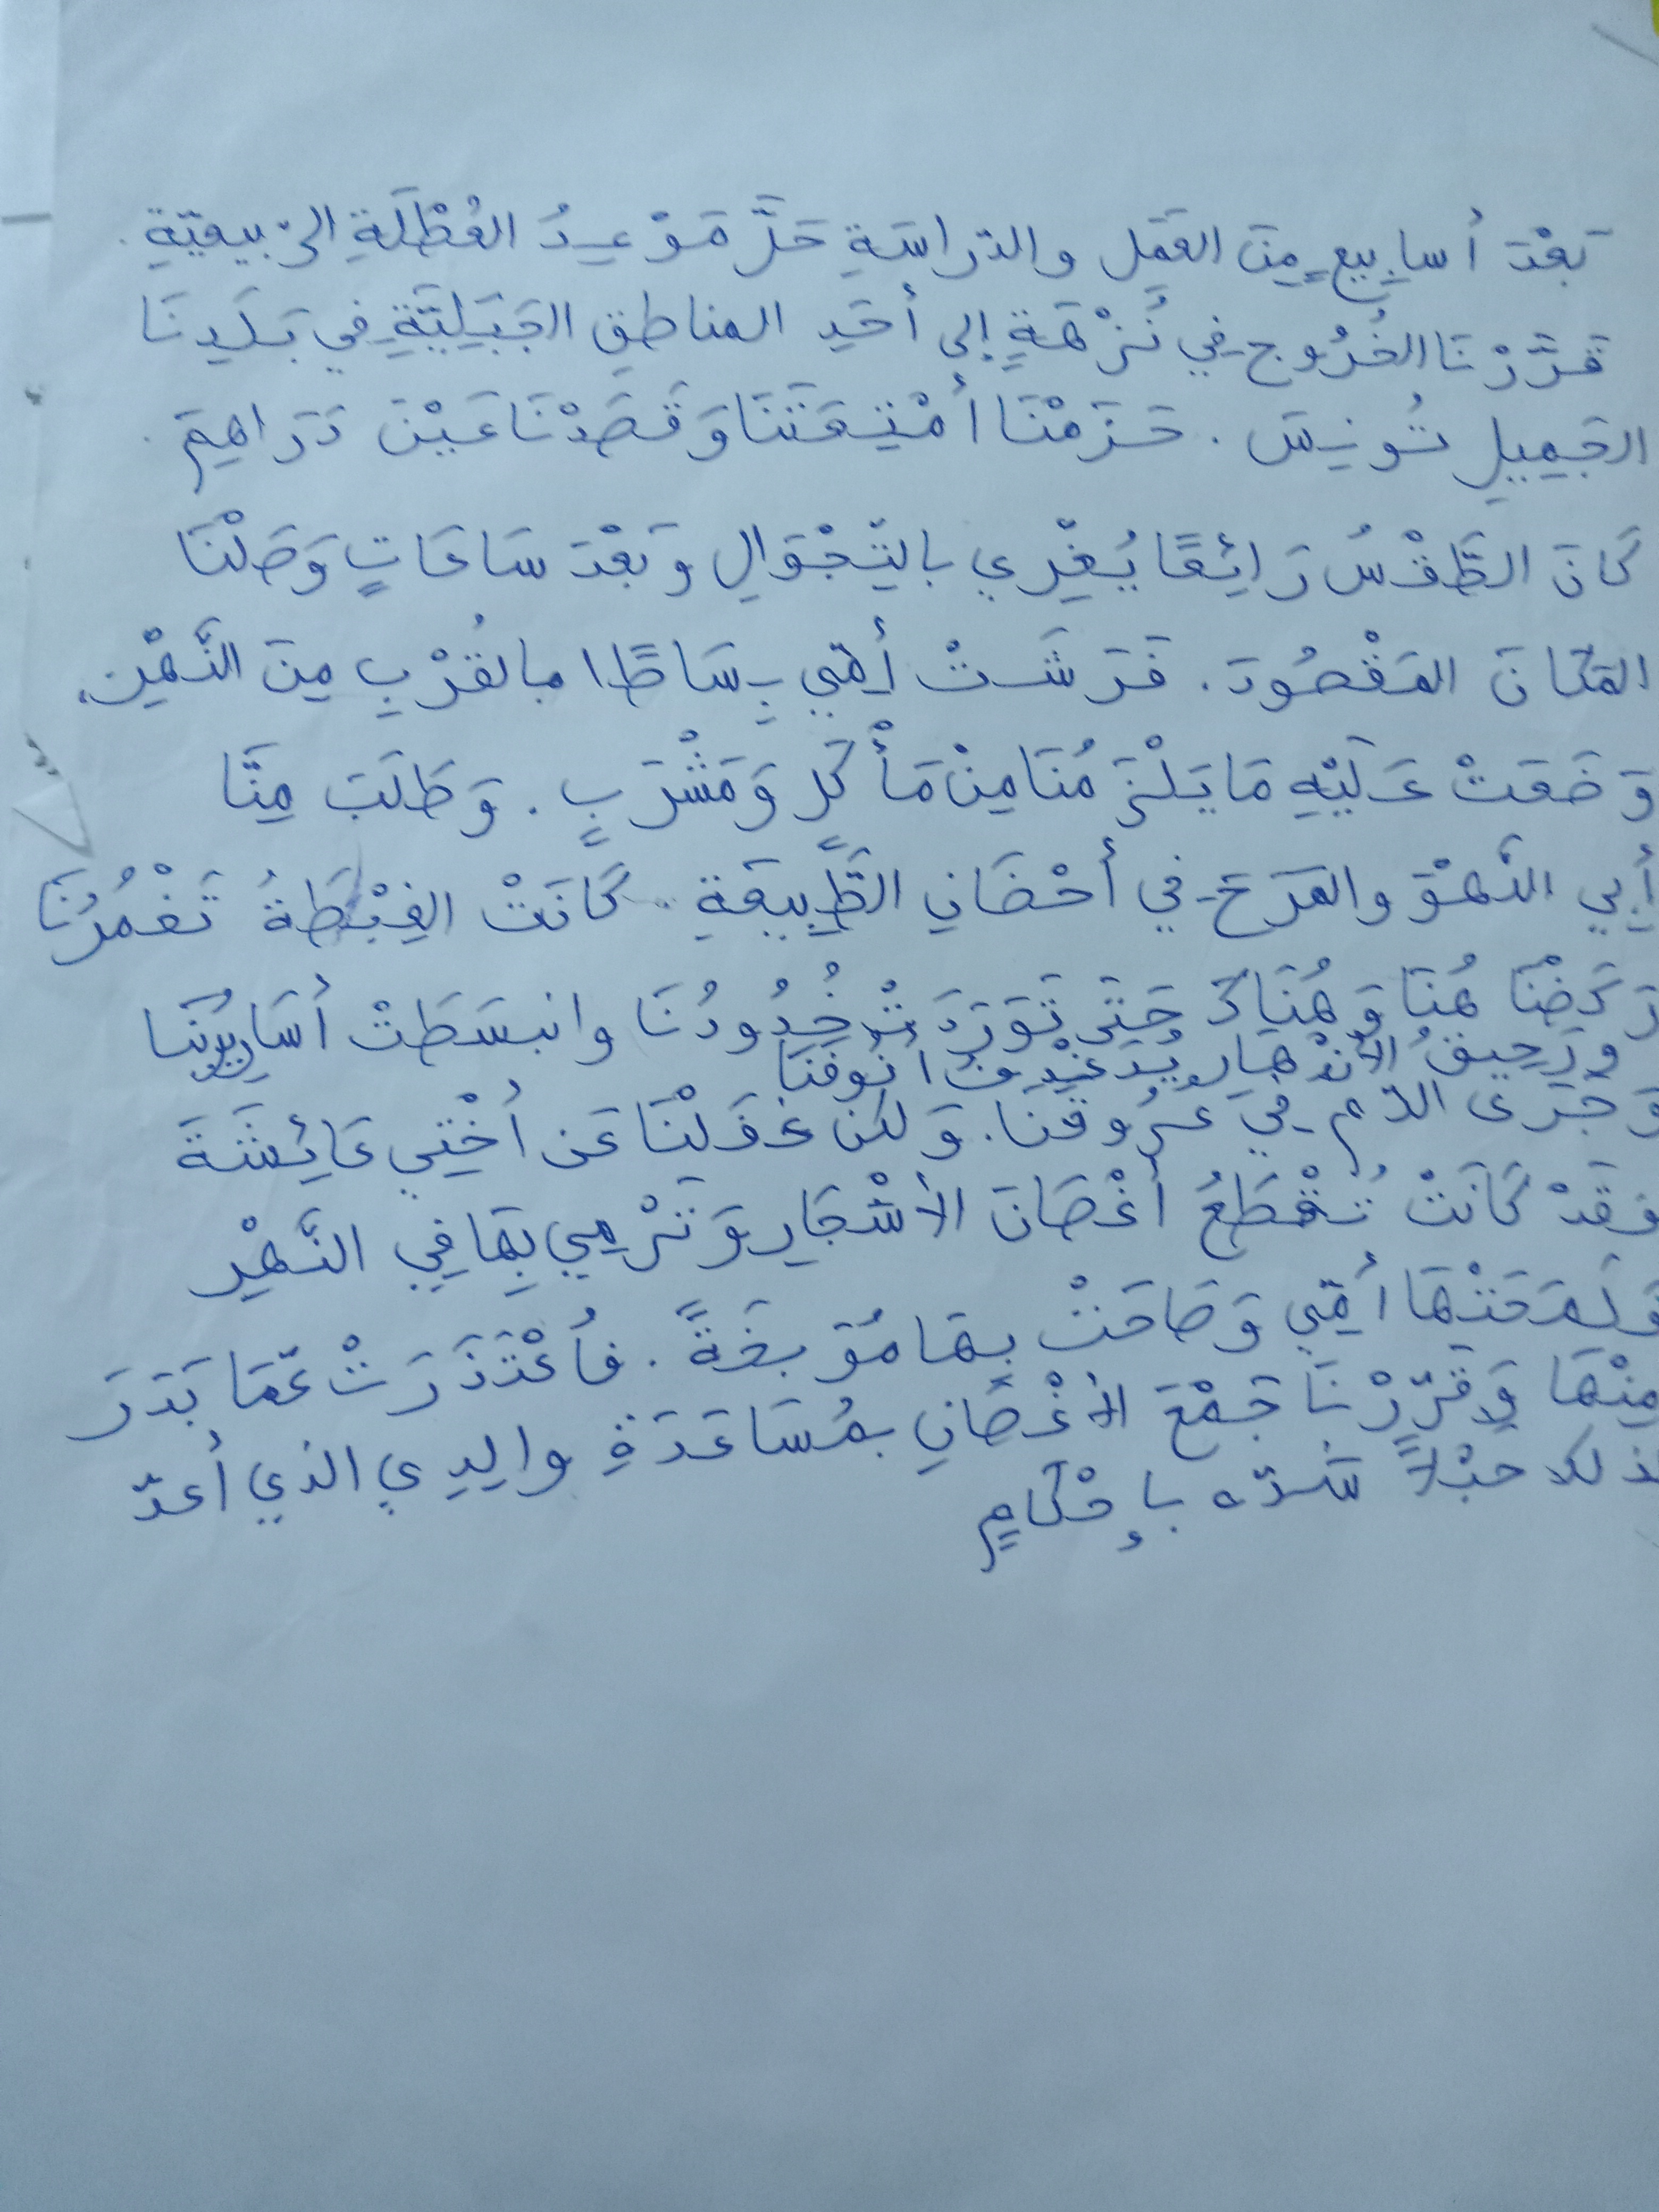 بَعْدَ أسابِيعٍ مِنَ العَمَلِ والدّراسَةِ حَلَّ مَوْعِدُ العُطْلَةِ الرّبيعيّةِ.
قَرَّرْنَا الخُرُوجَ فِي نُزْهَةٍ إلى أحَدِ المناطِقِ الجَبَلِيَّةِ فِي بَلَدِنَا
الجَمِيلِ تُونِسَ. حَزَمْنَا أَمْتِعَتَنَا وَقَصَدْنَا عَيْنَ دَرَاهِمَ.
كَانَ الطَّقْسُ رَائِعًا يُغْرِي بالتِّجْوَالِ وبَعْدَ سَاعَاتٍ وَصَلْنَا
المَكَانَ المَقْصُودَ. فَرَشَتْ أُمِّي بِسَاطًا بالقُرْبِ مِنَ النَّهْرِ،
وَضَعَتْ عَلَيْهِ مَا يَلْزَمُنَا مِنْ مَأْكَلٍ وَمَشْرَبٍ. وَطَلَبَ مِنَّا
أَبِي اللَّهْوَ والمَرَحَ فِي أحْضَانِ الطَّبِيعَةِ.. كَانَتْ الغِبْطَةُ تَغْمُرُنَا
رَكَضْنَا هُنَا وَهُنَاكَ حَتَّى تَوَرَّدَتْ خُدُودُنَا وانبسَطَتْ أَسَارِيرُنَا
ورَحِيقُ الأزْهَارِ يُدَغْدِغُ أُنُوفَنَا
وَجَرَى الدّم فِي عُرُوقِنَا. وَلكن غَفَلْنَا عَن أُخْتِي عَائِشَةَ
فقَدْ كَانَتْ تُقْطَعُ أغْصَانَ الأشْجَارِ وَتَرْمِي بِهَا فِي النَّهْرِ
وَلَمَحَتْهَا أُمِّي وَصَاحَتْ بِهَا مُوَبخَةً. فاُعْتَذَرَتْ عَمّا بَدَرَ
مِنْهَا وَقَرّرْنَا جَمْعَ الأغْصَانِ بمُسَاعَدَةِ والِدِي الذي أُعدّ
لذلك حبْلاً شَدّه بإحْكَامٍ